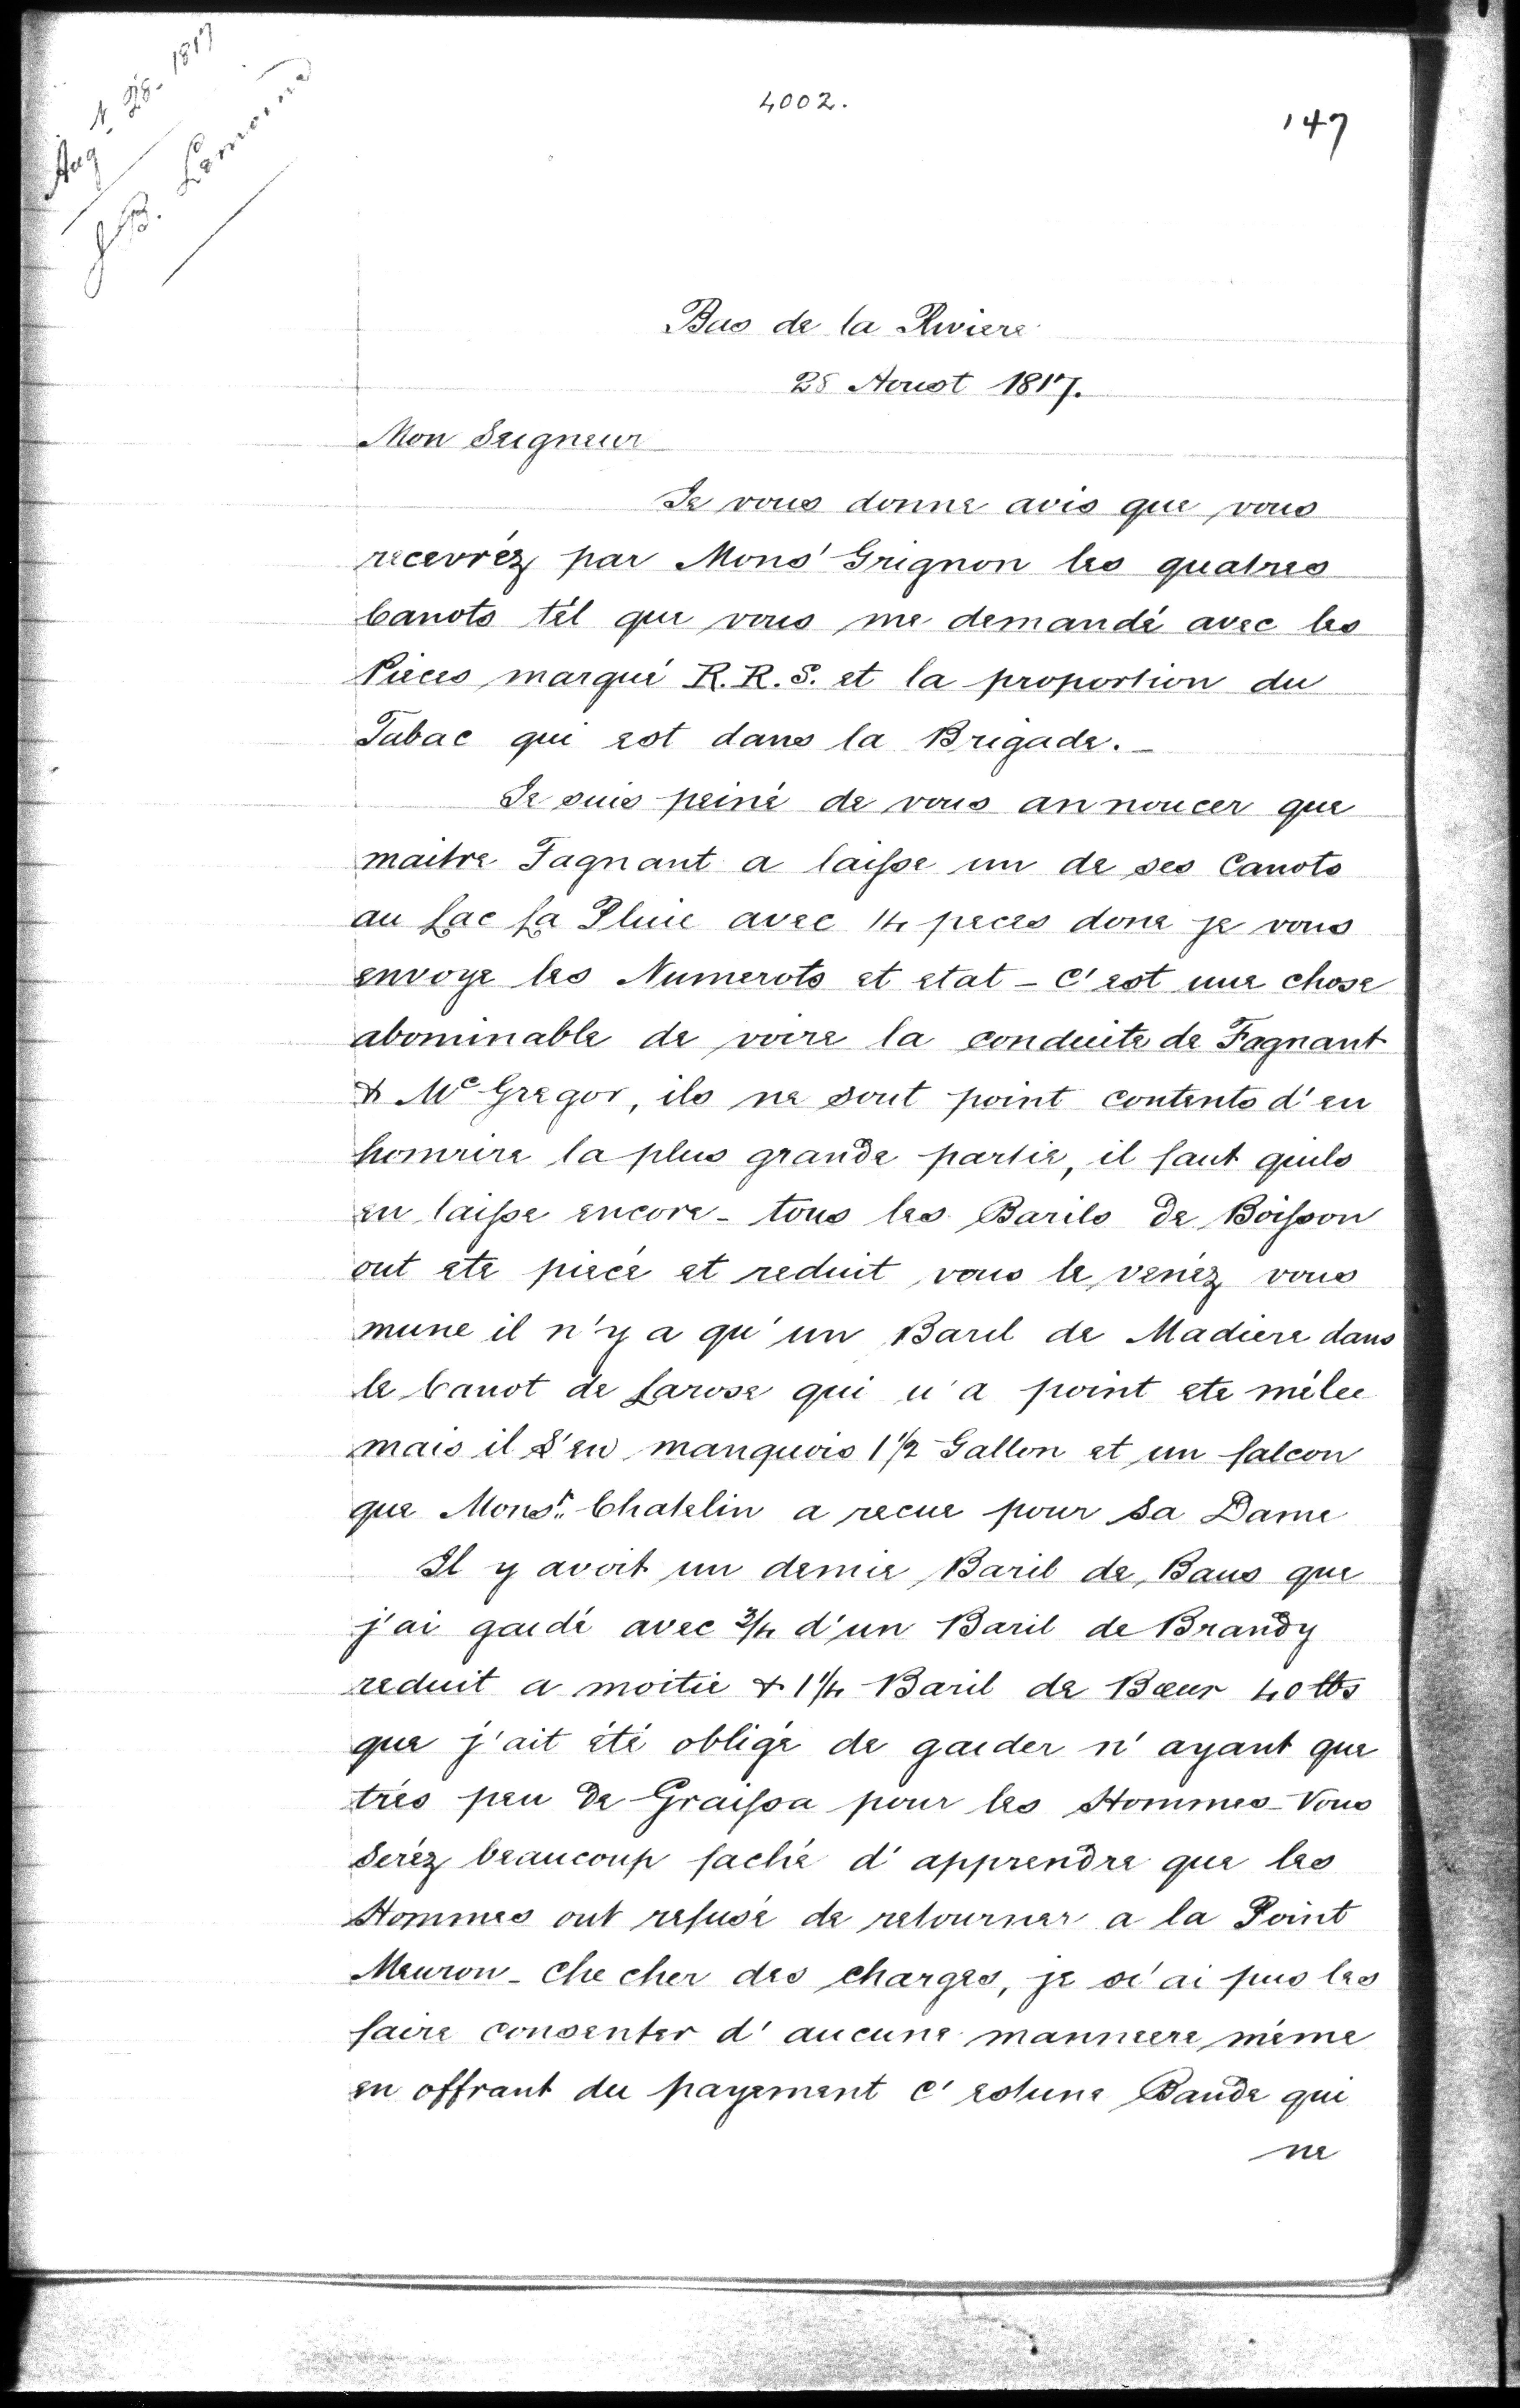 Aug 28. 1817
J.B. Lemoine
4002.
147
Bas de la Riviere
28 Aoust 1817.
Mon Seigneur
Je vous donne avis que vous
recevréz par Monsʳ Grignon les quatres
Canots tél que vous me demandé avec les
Pieces marqué R.R.S. et la proportion du
Tabac qui est dans la Brigade._
Je suis peiné de vous annoncer que
maitre Fagnant a laisse un de ses Canots
au Lac La Pluie avec 14 peces done je vous
envoye les Numerots et etat - C'est une chose
abominable de voire la conduite de Fagnant
& Mᶜ Gregor, ils ne sont point contents d'en
homrire la plus grande partie, il faut quils
en laisse encore - tous les Barils de Boisson
ont ete piecé et reduit, vous le venéz vous
mune il n'y a qu'un Baril de Madiere dans
le Canot de Larose qui n'a point ete mélee
mais il S'en manquois 1 1/2 Gallon et un falcon
que Monsʳ. Chatelin a recue pour Sa Dame
Il y avoit un demie Baril de Baus que
j'ai gardé avec 3/4 d'un Baril de Brandy
reduit a moitie & 1 1/4 Baril de Bœur 40 lbs
que j'ait été obligé de garder n'ayant que
trés peu de Graissa pour les Hommes - Vous
Seréz beaucoup faché d'apprendre que les
Hommes ont refusé de retourner a la Point
Meuron - Che cher des charges, je n'ai pus les
faire consenter d'aucune manneere méme
en offrant du payement c'estune Bande qui
ne